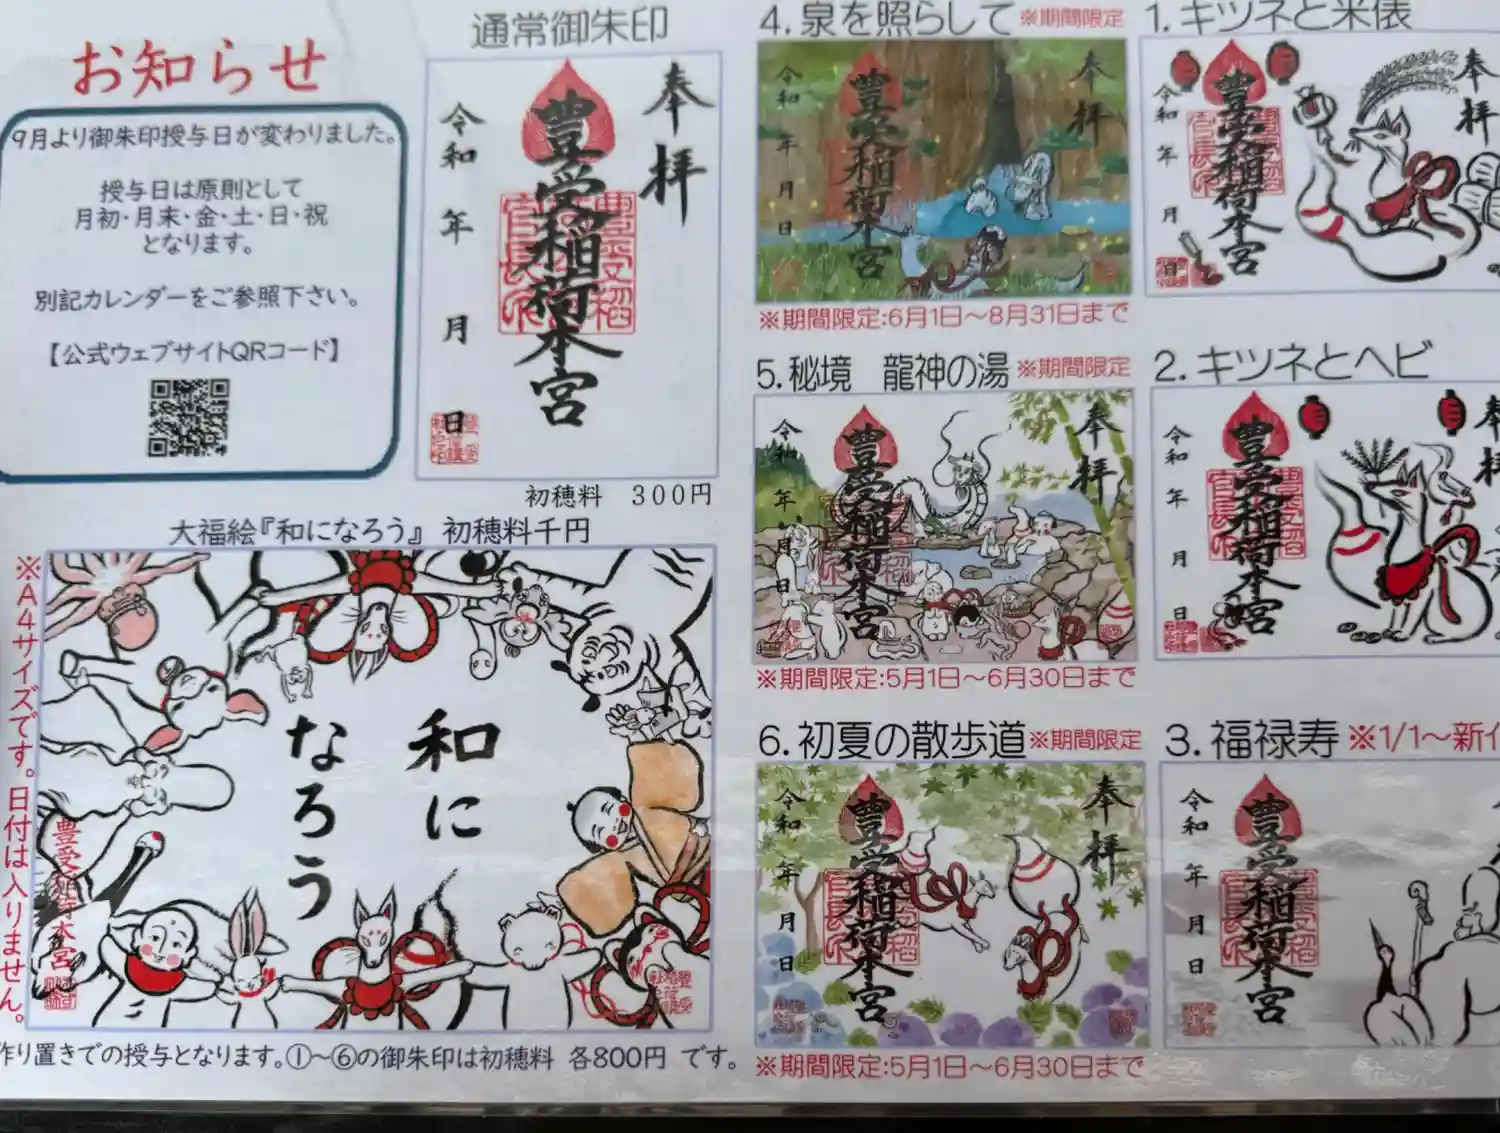 お知らせ
9月より御朱印授与日が変わりました。
授与日は原則として
月初・月末・金・土・日・祝
となります。
別記カレンダーをご参照下さい。
【公式ウェブサイトQRコード】
通常御朱印
奉拝
豊受稲荷本宮
令和 年 月 日
初穂料 300円
大福絵『和になろう』 初穂料千円
※A4サイズです。日付は入りません。
和に
なろう
豊受稲荷本宮
作り置きでの授与となります。①～⑥の御朱印は初穂料 各800円 です。
4.泉を照らして ※期間限定
奉拝
豊受稲荷本宮
令和 年 月 日
※期間限定:6月1日～8月31日まで
5.秘境 龍神の湯 ※期間限定
奉拝
豊受稲荷本宮
令和 年 月 日
※期間限定:5月1日～6月30日まで
6.初夏の散歩道 ※期間限定
奉拝
豊受稲荷本宮
令和 年 月 日
※期間限定:5月1日～6月30日まで
1.キツネと米俵
奉拝
豊受稲荷本宮
令和 年 月 日
2.キツネとヘビ
奉拝
豊受稲荷本宮
令和 年 月 日
3.福禄寿 ※1/1～新作
豊受稲荷本宮
令和 年 月 日